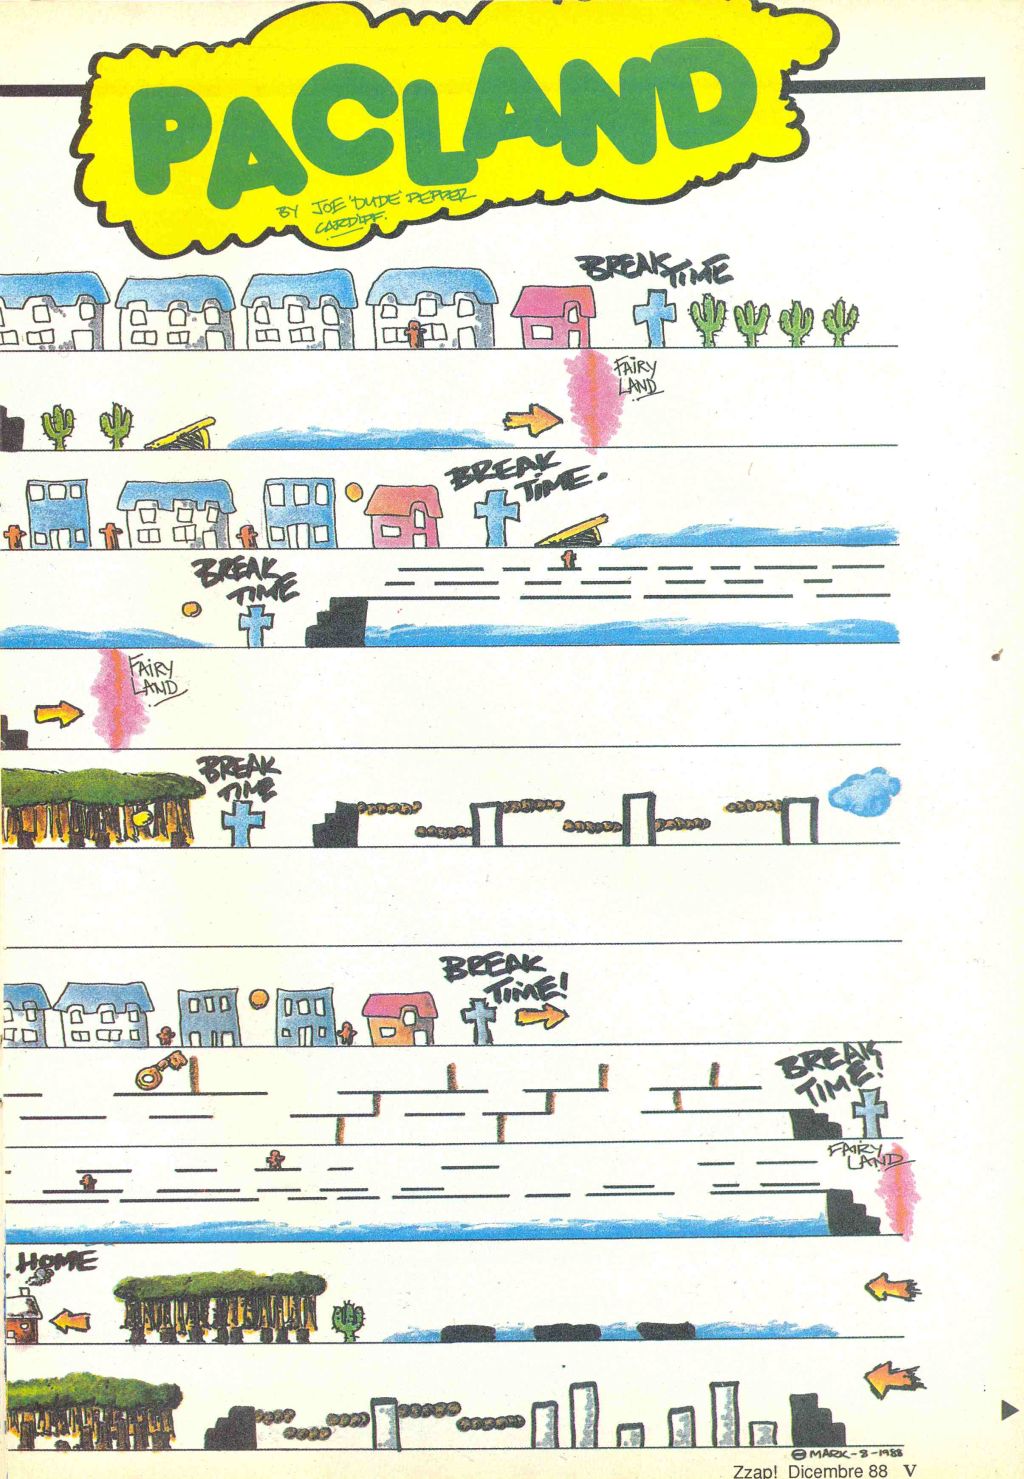 PACLAND
BY JOE 'DUDE' PEPPER
CARDIFF.
BREAK TIME
FAIRY
LAND
BREAK
TIME.
BREAK
TIME
FAIRY
LAND
BREAK
TIME
BREAK
TIME!
BREAK
TIME!
FAIRY
LAND
HOME
MARK-8-1988
Zzap! Dicembre 88 V